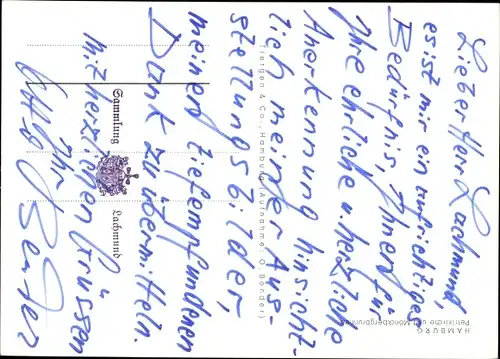 Lieber Herr Lachmund,
es ist mir ein aufrichtiges
Bedürfnis, Ihnen für
Ihre ehrliche u. herzliche
Anerkennung hinsicht-
lich meiner Aus-
stellungsbilder,
meinen tiefempfundenen
Dank zu übermitteln.
Mit herzlichen Grüssen
Ihr
Otto Bender
HAMBURG
Petrikirche und Mönckebergbrunnen
Tiergen & Co., Hamburg (Aufnahme: O. Bender)
Sammlung
Lachmund